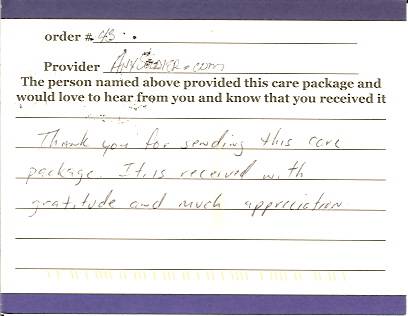 order # 43
Provider AnySoldier.com
The person named above provided this care package and
would love to hear from you and know that you received it
Thank you for sending this care
package. It is received with
gratitude and much appreciation